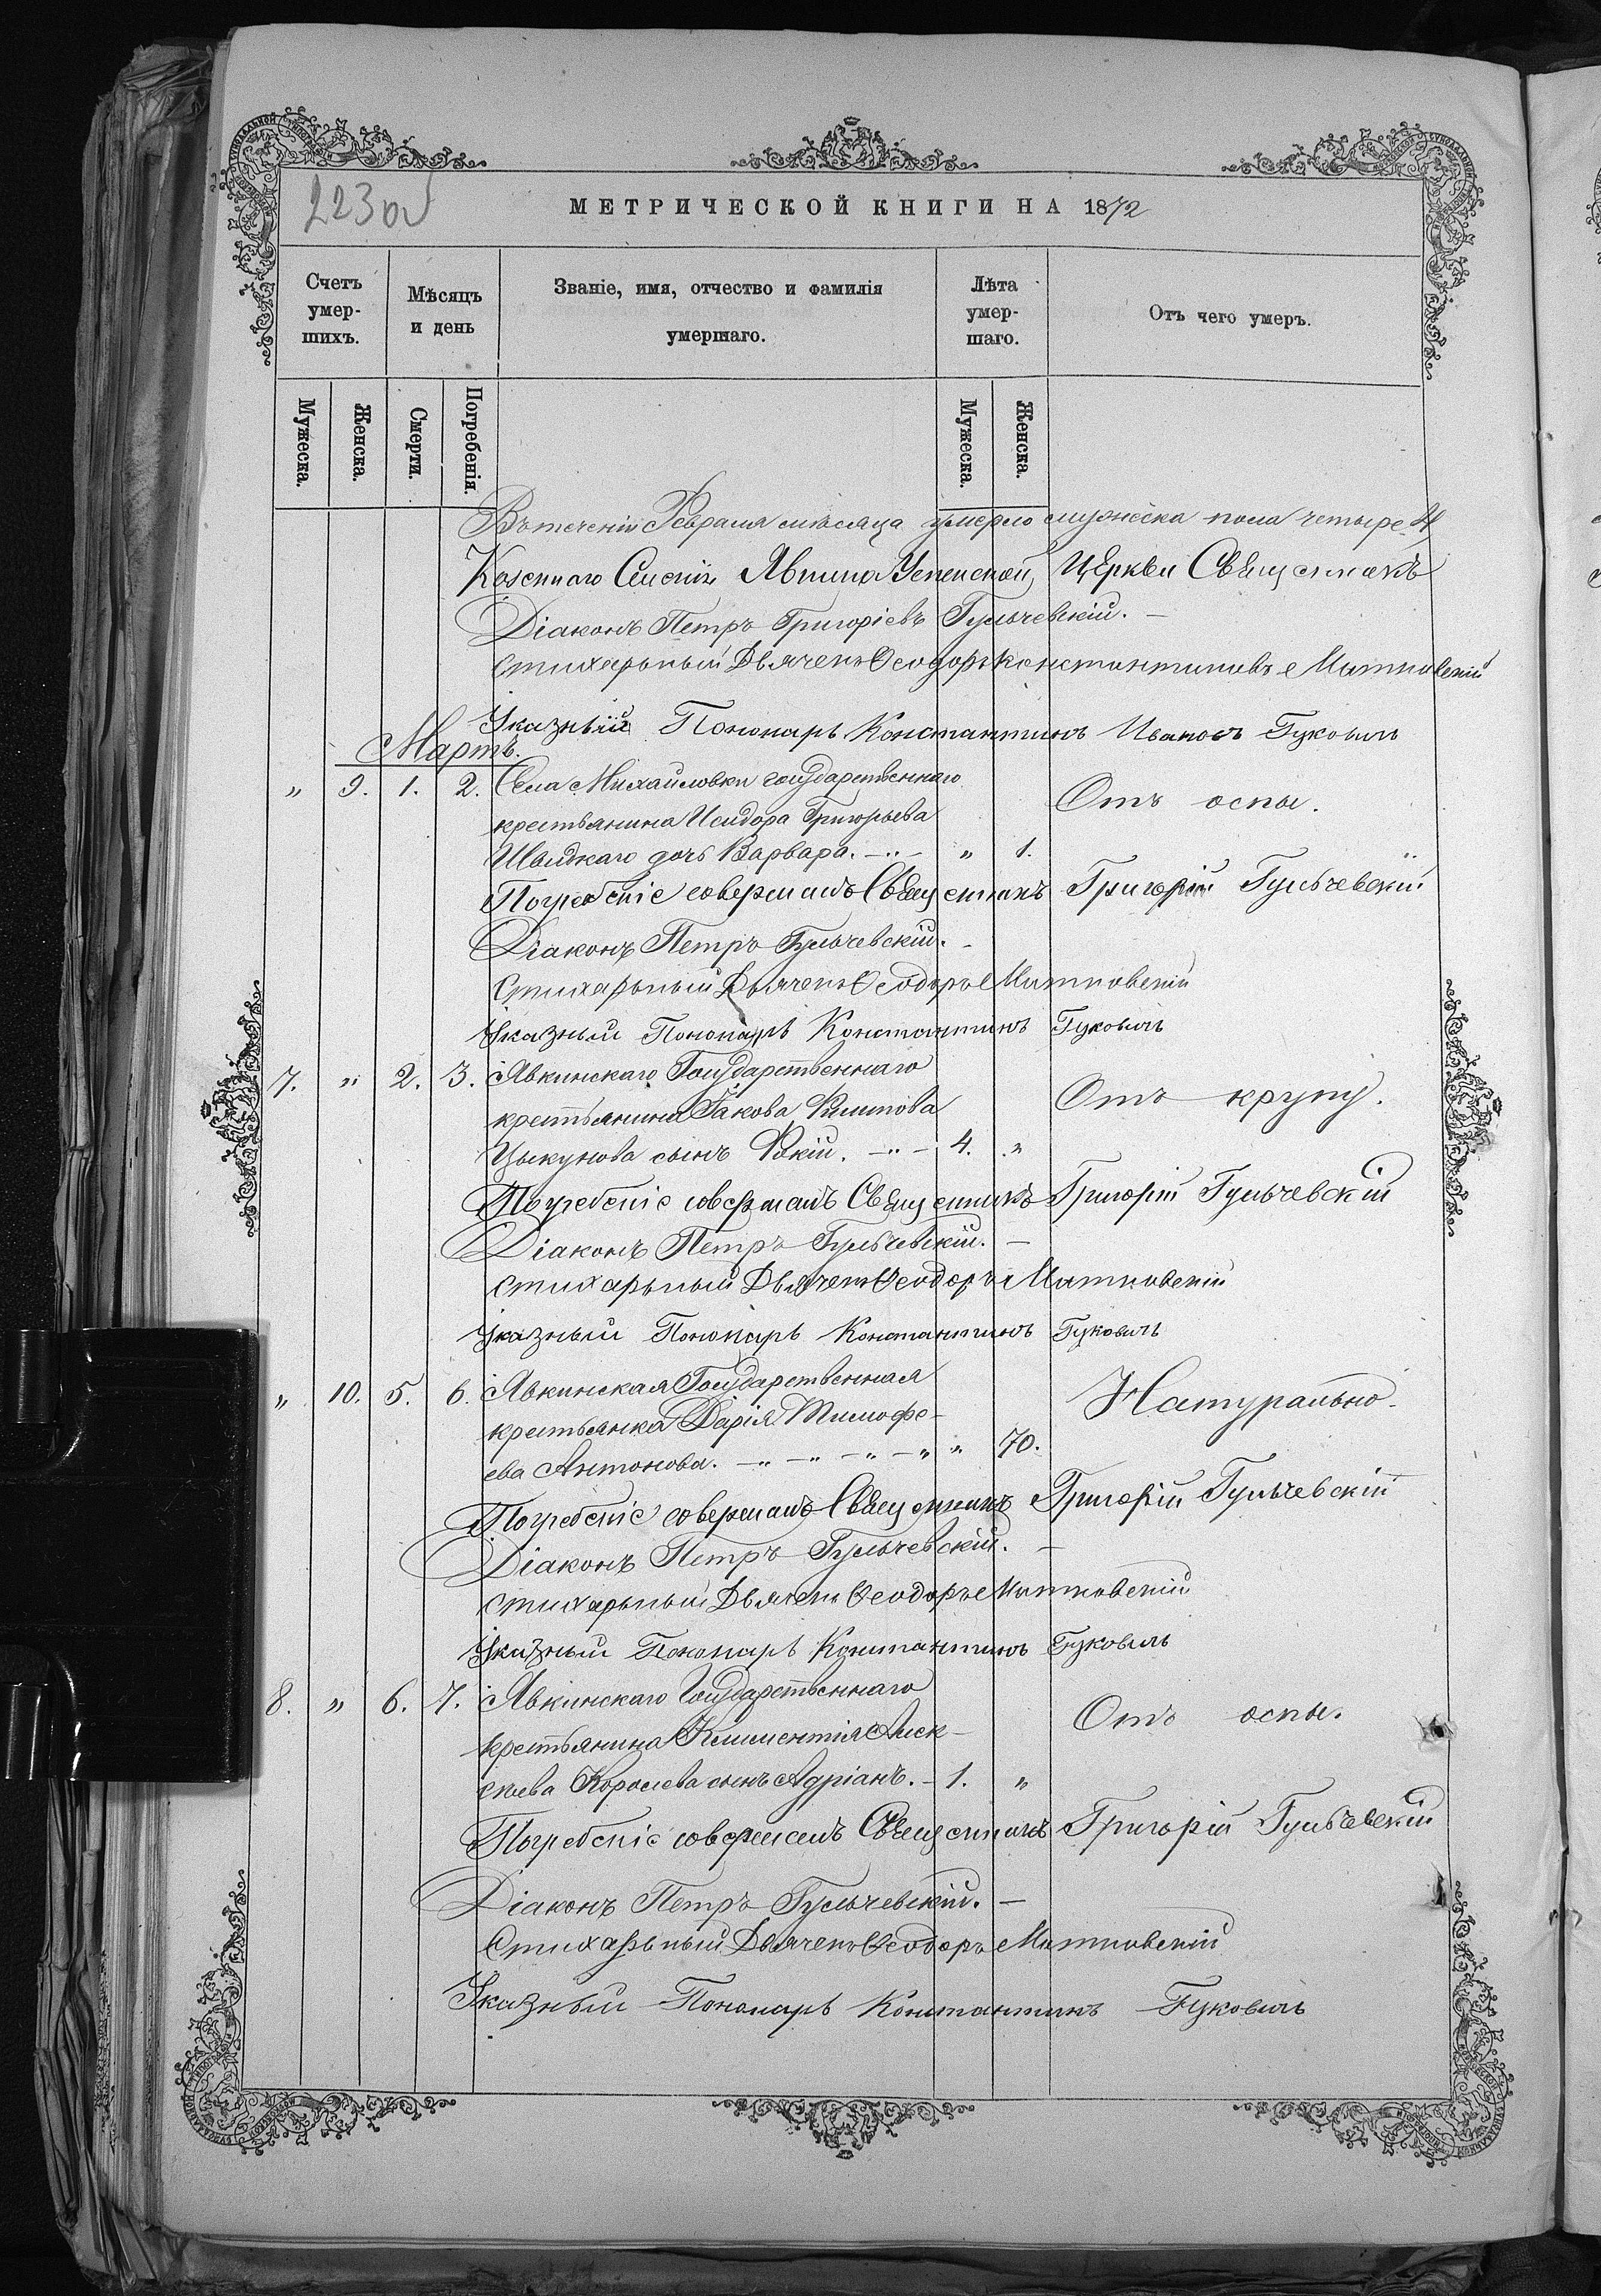 223 об
МЕТРИЧЕСКОЙ КНИГИ НА 1872
Счетъ умер-шихъ.
Мѣсяцъ и день
Званіе, имя, отчество и фамилія умершаго.
Лѣта умер-шаго.
Отъ чего умеръ.
Мужеска.
Женска.
Смерти.
Погребенія.
Мужеска.
Женска.
Въ теченіи Февраля мѣсяца умерло мужеска пола четыре 4
Казеннаго Селенія Явкина Успенской Церкви Священникъ
Діаконъ Петръ Григоріевъ Гульчевскій. —
Стихарьный Дьячекъ Ѳеодоръ Константиновъ Матковскій
Указный Пономарь Константинъ Ивановъ Гуковичъ
Мартъ.
" 9. 1. 2. Села Михайловки государственнаго
крестьянина Исидора Григорьева
Отъ оспы.
Швидкаго дочь Варвара. — " — " 1.
Погребеніе совершалъ Священникъ Григорій Гульчевскій
Діаконъ Петръ Гульчевскій. —
Стихарьный Дьячекъ Ѳеодоръ Матковскій
Указный Пономарь Константинъ Гуковичъ
7. " 2. 3. Явкинскаго Государственнаго
крестьянина Іакова Филипова
Отъ крупу.
Цыкунова сынъ Фокій. — " — 4. "
Погребеніе совершалъ Священникъ Григорій Гульчевскій
Діаконъ Петръ Гульчевскій. —
Стихарьный Дьячекъ Ѳеодоръ Матковскій
Указный Пономарь Константинъ Гуковичъ
" 10. 5. 6. Явкинская Государственная
крестьянка Дарія Тимофе-
Натурально.
ева Антонова. — " — " — " — " " 70.
Погребеніе совершалъ Священникъ Григорій Гульчевскій
Діаконъ Петръ Гульчевскій. —
Стихарьный Дьячекъ Ѳеодоръ Матковскій
Указный Пономарь Константинъ Гуковичъ
8. " 6. 7. Явкинскаго Государственнаго
крестьянина Климентія Алек-
Отъ оспы.
сѣева Королева сынъ Адріанъ. — 1. "
Погребеніе совершалъ Священникъ Григорій Гульчевскій
Діаконъ Петръ Гульчевскій. —
Стихарьный Дьячекъ Ѳеодоръ Матковскій
Указный Пономарь Константинъ Гуковичъ